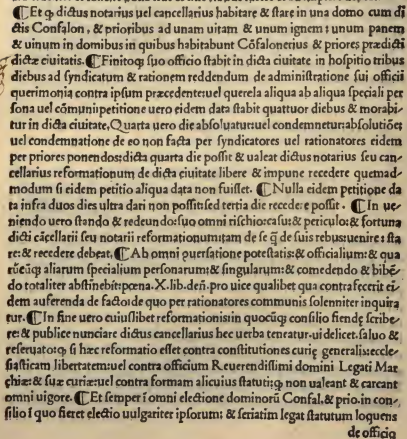 ¶ Et ꝙ dictus notarius uel cancellarius habitare & stare in una domo cum di
ctis Confalon, & prioribus ad unam uitam & unum ignem: unum panem
& uinum in domibus in quibus habitabunt Cōfalonerius & priores prædicti
dictæ ciuitatis. ¶ Finitoq; suo officio stabit in dicta ciuitate in hospitio tribus
diebus ad syndicatum & rationem reddendum de administratione sui officii
querimonia contra ipsum præcedente: uel querela aliqua ab aliqua speciali per
sona uel cōmuni: petitione uero eidem data stabit quattuor diebus & morabi/
tur in dicta ciuitate, Quarta uero die absoluatur: uel condemnetur: absolutiōe:
uel condemnatione de eo non facta per syndicatores uel rationatores eidem
per priores ponendos: dicta quarta die possit & ualeat dictus notarius seu can/
cellarius reformationum de dicta ciuitate libere & impune recedere quemad/
modum si eidem petitio aliqua data non fuisset. ¶ Nulla eidem petitione da
ta infra duos dies ultra dari non possit: sed tertia die recedere possit. ¶ In ue/
niendo uero stando & redeundo: suo omni rischio: casu: & periculo: & fortuna
dicti cācellarii seu notarii reformationum: tam de se q̄ de suis rebus: uenire: sta
re: & recedere debeat, ¶ Ab omni ꝓuersatione potestatis: & officialium: & qua
rūcūq; aliarum specialium personarum: & singularum: & comedendo & bibē/
do totaliter abstinebit: pœna. X. lib. deñ. pro uice qualibet qua contrafecerit ei/
dem auferenda de facto: de quo per rationatores communis solenniter inquira
tur. ¶ In fine uero cuiuslibet reformationis: in quocūq; consilio fiendę scribe/
re: & publice nunciare dictus cancellarius hec uerba teneatur. uidelicet. saluo &
reseruato: ꝙ si hæc reformatio esset contra constitutiones curię generalis: eccle/
siasticam libertatem: uel contra officium Reuerendissimi domini Legati Mar
chiæ: & suæ curiæ: uel contra formam alicuius statuti: ꝙ non ualeant & carcant
omni uigore. ¶ Et semper ī omni electione dominorū Confal. & prio. in con/
silio ī quo fieret electio uulgariter ipsorum: & seriatim legat statutum loquens
de officio